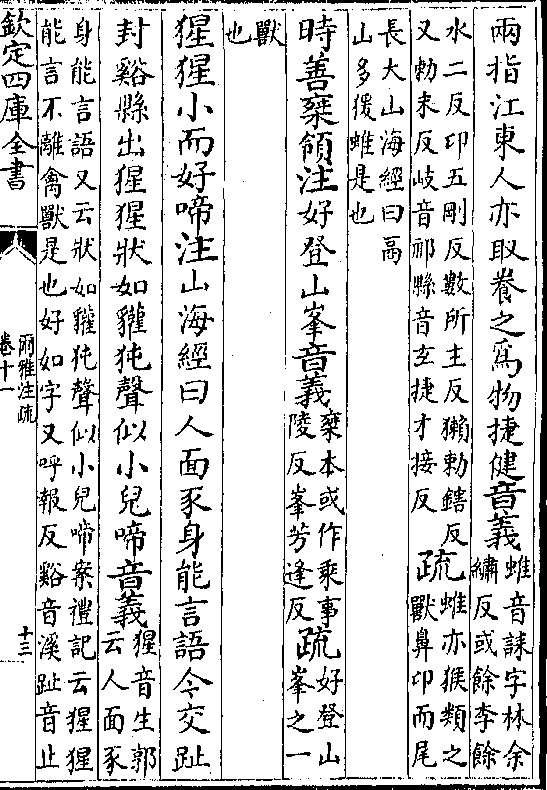 兩指江東人亦取養之爲物捷健音義
蜼音誄字林余
繡反或餘李餘
水二反卬五剛反數所主反獺勅鎋反
又勅末反岐音祁縣音玄捷才接反
疏
蜼亦猴類之
獸鼻卬而尾
長大山海經曰鬲
山多猨蜼是也
時善椉領注好登山峯音義
椉本或作乘事
陵反峯芳逢反
疏
好登山
峯之一
獸
也
猩猩小而好啼注山海經曰人面豕身能言語今交趾
封谿縣出猩猩狀如貛㹠聲似小兒啼音義
猩音生郭
云人面豕
身能言語又云狀如貛㹠聲似小兒啼寮禮記云猩猩
能言不離禽獸是也好如字又呼報反谿音溪趾音止
欽定四庫全書
爾雅注疏
卷十一
十三